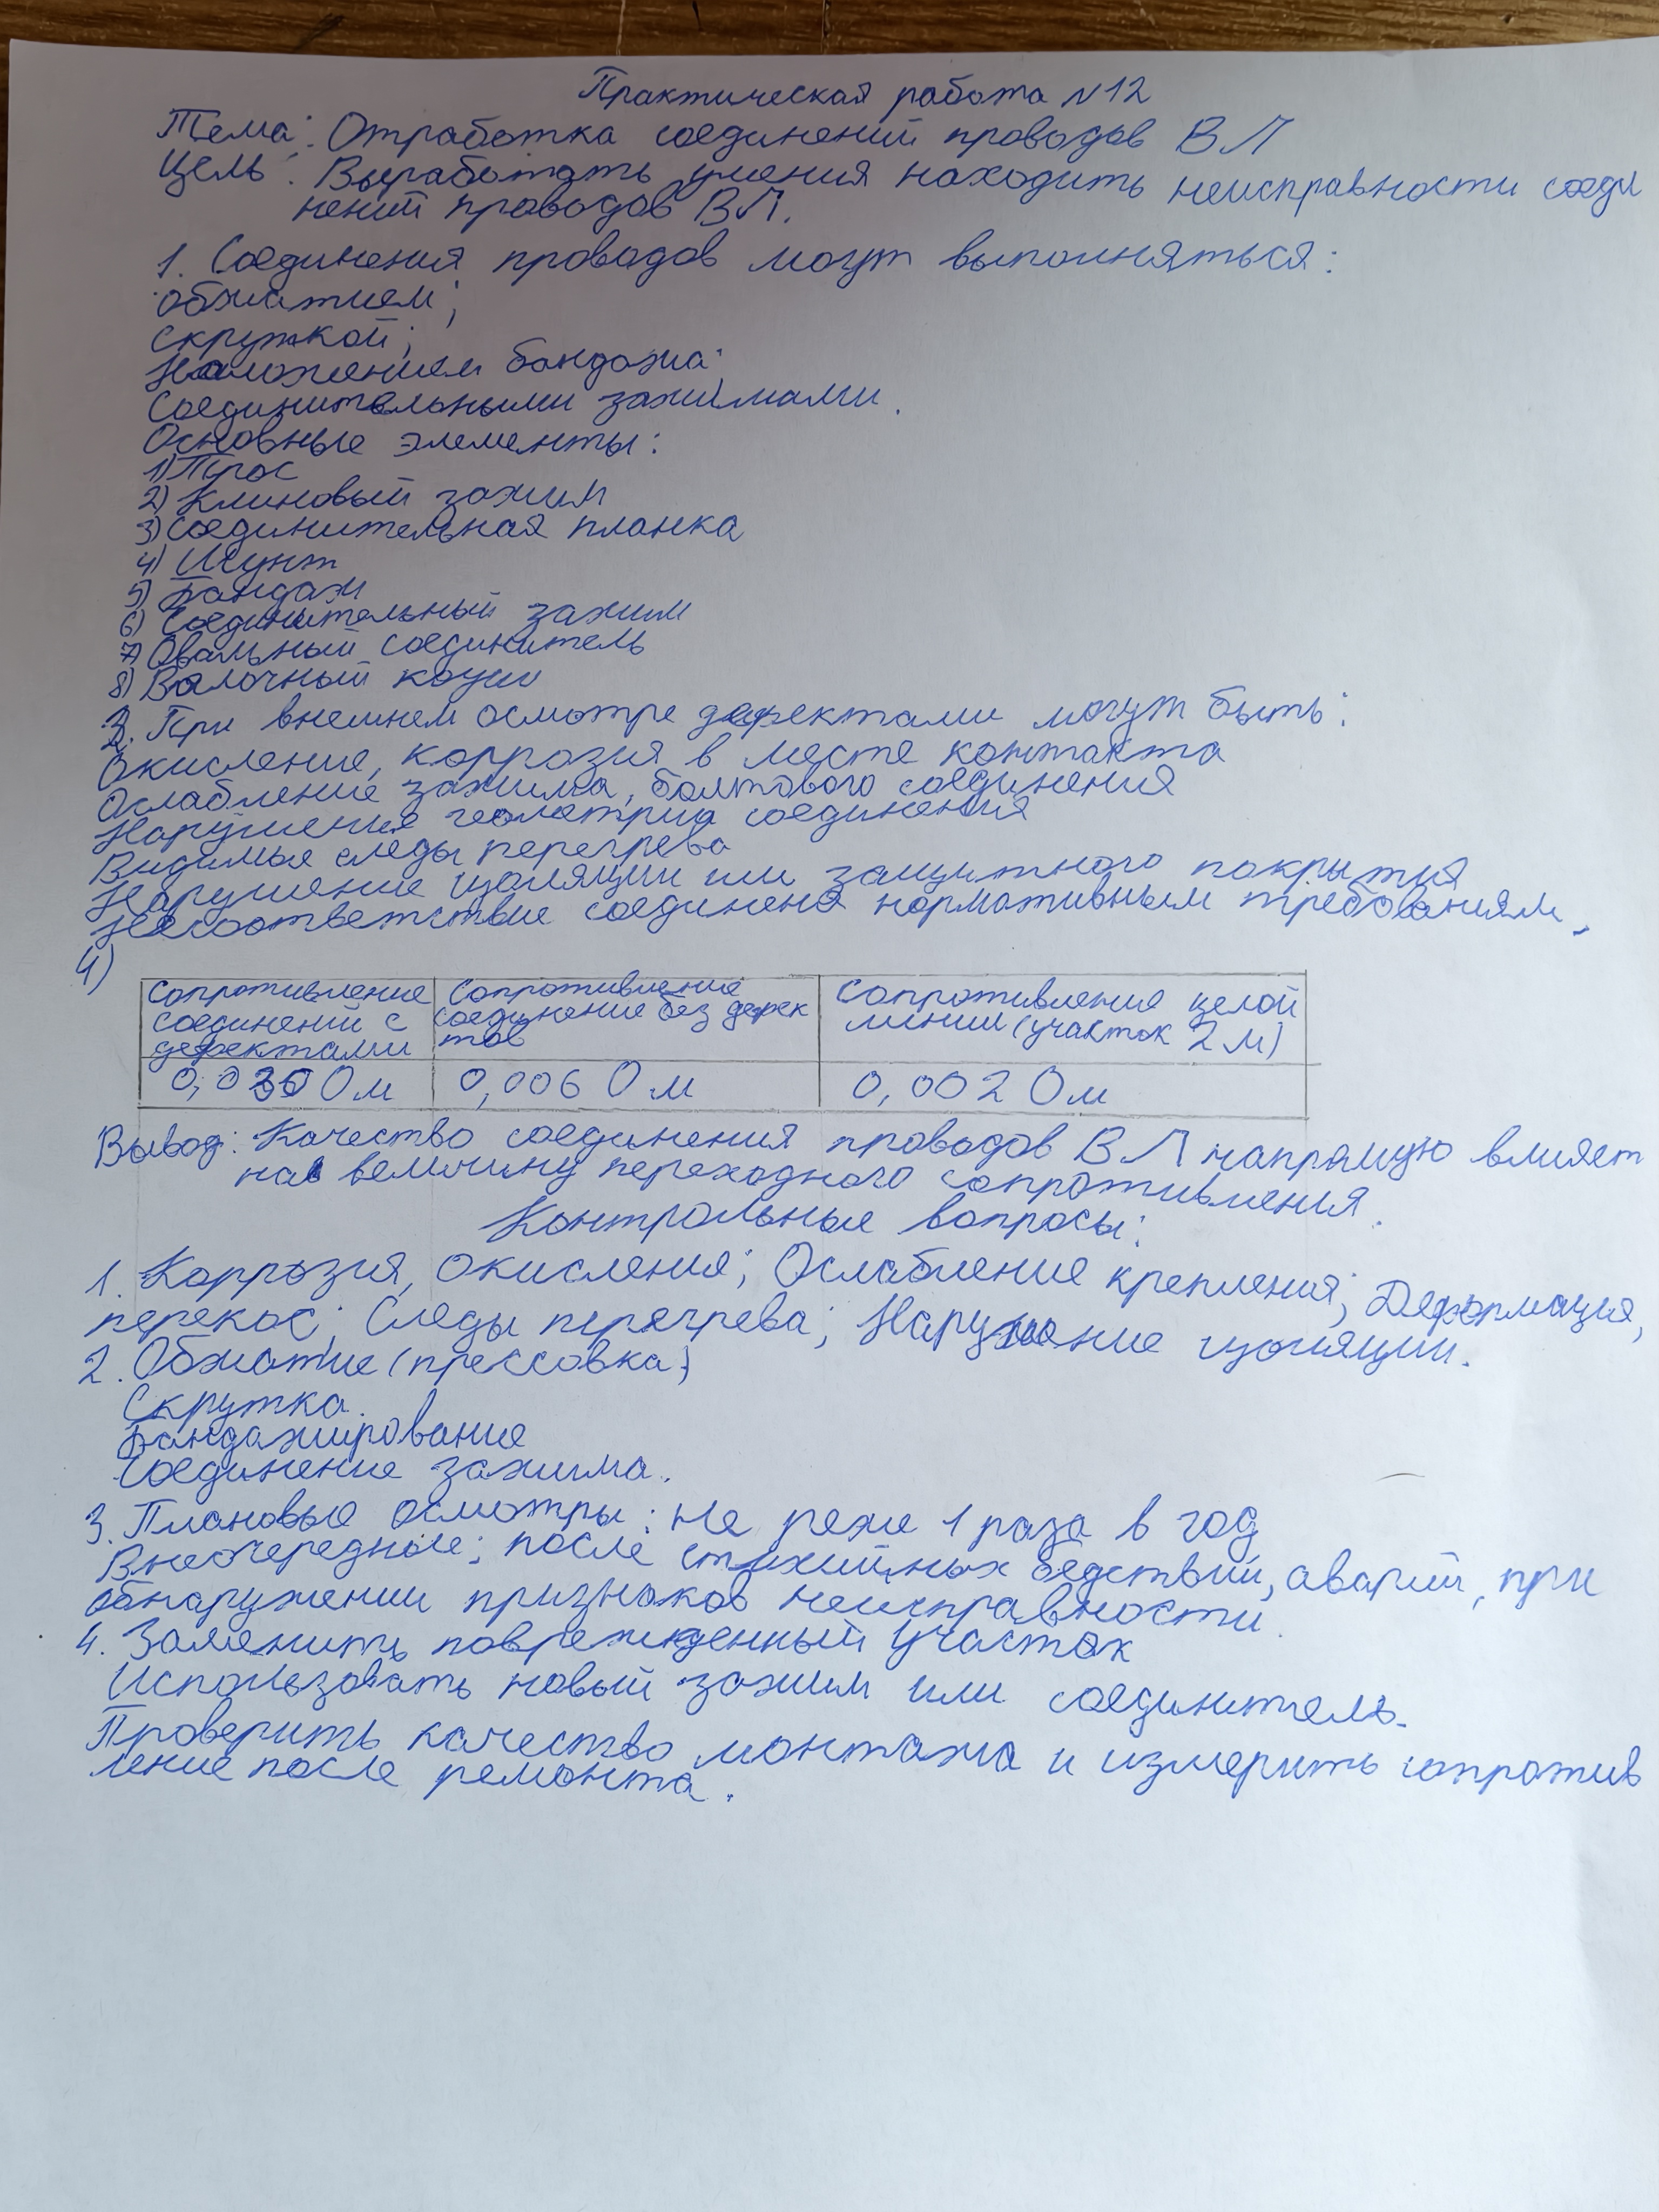 Практическая работа №12
Тема: Отработка соединений проводов ВЛ
Цель: Выработать умения находить неисправности соеди
нений проводов ВЛ.
1. Соединения проводов могут выполняться:
обжатием;
скруткой;
Наложением бандажа;
Соединительными зажимами.
Основные элементы:
1) Трос
2) Клиновый зажим
3) Соединительная планка
4) Шунт
5) Бандаж
6) Соединительный зажим
7) Овальный соединитель
8) Вилочный коуш
3. При внешнем осмотре дефектами могут быть:
Окисление, коррозия в месте контакта
Ослабление зажима, болтового соединения
Нарушения геометрии соединения
Видимые следы перегрева
Нарушение изоляции или защитного покрытия
Несоответствие соединена нормативным требованиям.
4)
Сопротивление соединений с дефектами
Сопротивление соединение без дефек тов
Сопротивления целой линии (участок 2 м)
0,030 Ом
0,006 Ом
0,002 Ом
Вывод: Качество соединения проводов ВЛ напрямую влияет
на величину переходного сопротивления.
Контрольные вопросы:
1. Коррозия, окисления; Ослабление крепления; Деформация,
перекос; Следы перегрева; Нарушение изоляции.
2. Обжатие (прессовка)
Скрутка.
Бандажирование
Соединение зажима.
3. Плановые осмотры: Не реже 1 раза в год
Внеочередные: после стихийных бедствий, аварий, при
обнаружении признаков неисправности.
4. Заменить поврежденный участок
Использовать новый зажим или соединитель.
Проверить качество монтажа и измерить сопротив
ление после ремонта.